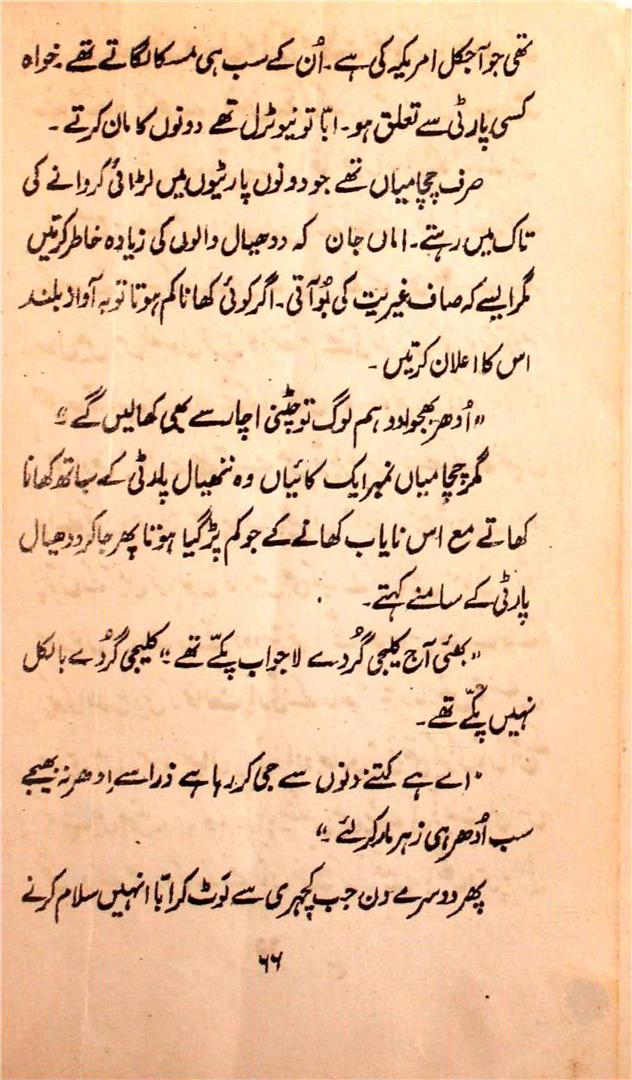 تھی جو آجکل امریکہ کی ہے۔ اُن کے سب ہی مسکا لگاتے تھے۔ خواہ
کسی پارٹی سے تعلق ہو۔ ابّا تو نیوٹرل تھے دونوں کا مان کرتے۔
صرف چچا میاں تھے جو دونوں پارٹیوں میں لڑائی کروانے کی
تاک میں رہتے۔ اماں جان کہ ددھیال والوں کی زیادہ خاطر کرتیں
مگر ایسے کہ صاف غیریت کی بُو آتی۔ اگر کوئی کھانا کم ہوتا تو بہ آواز بلند
اس کا اعلان کرتیں۔
"اُدھر بھجوا دو ہم لوگ تو چٹنی اچار سے بھی کھا لیں گے"
مگر چچا میاں نمبر ایک کائیاں وہ ننھیال پارٹی کے ساتھ کھانا
کھاتے مع اس نایاب کھانے کے جو کم پڑ گیا ہوتا پھر جا کر ددھیال
پارٹی کے سامنے کہتے۔
"بھئی آج کلیجی گُردے لاجواب پکّے تھے" کلیجی گُردے بالکل
نہیں پکّے تھے۔
"اے ہے کتنے دنوں سے جی کر رہا ہے ذرا سے اِدھر نہ بھیجے
سب اُدھر ہی زہر مار کر لئے"
پھر دوسرے دن جب کچہری سے لَوٹ کر ابّا انہیں سلام کرنے
۶۶